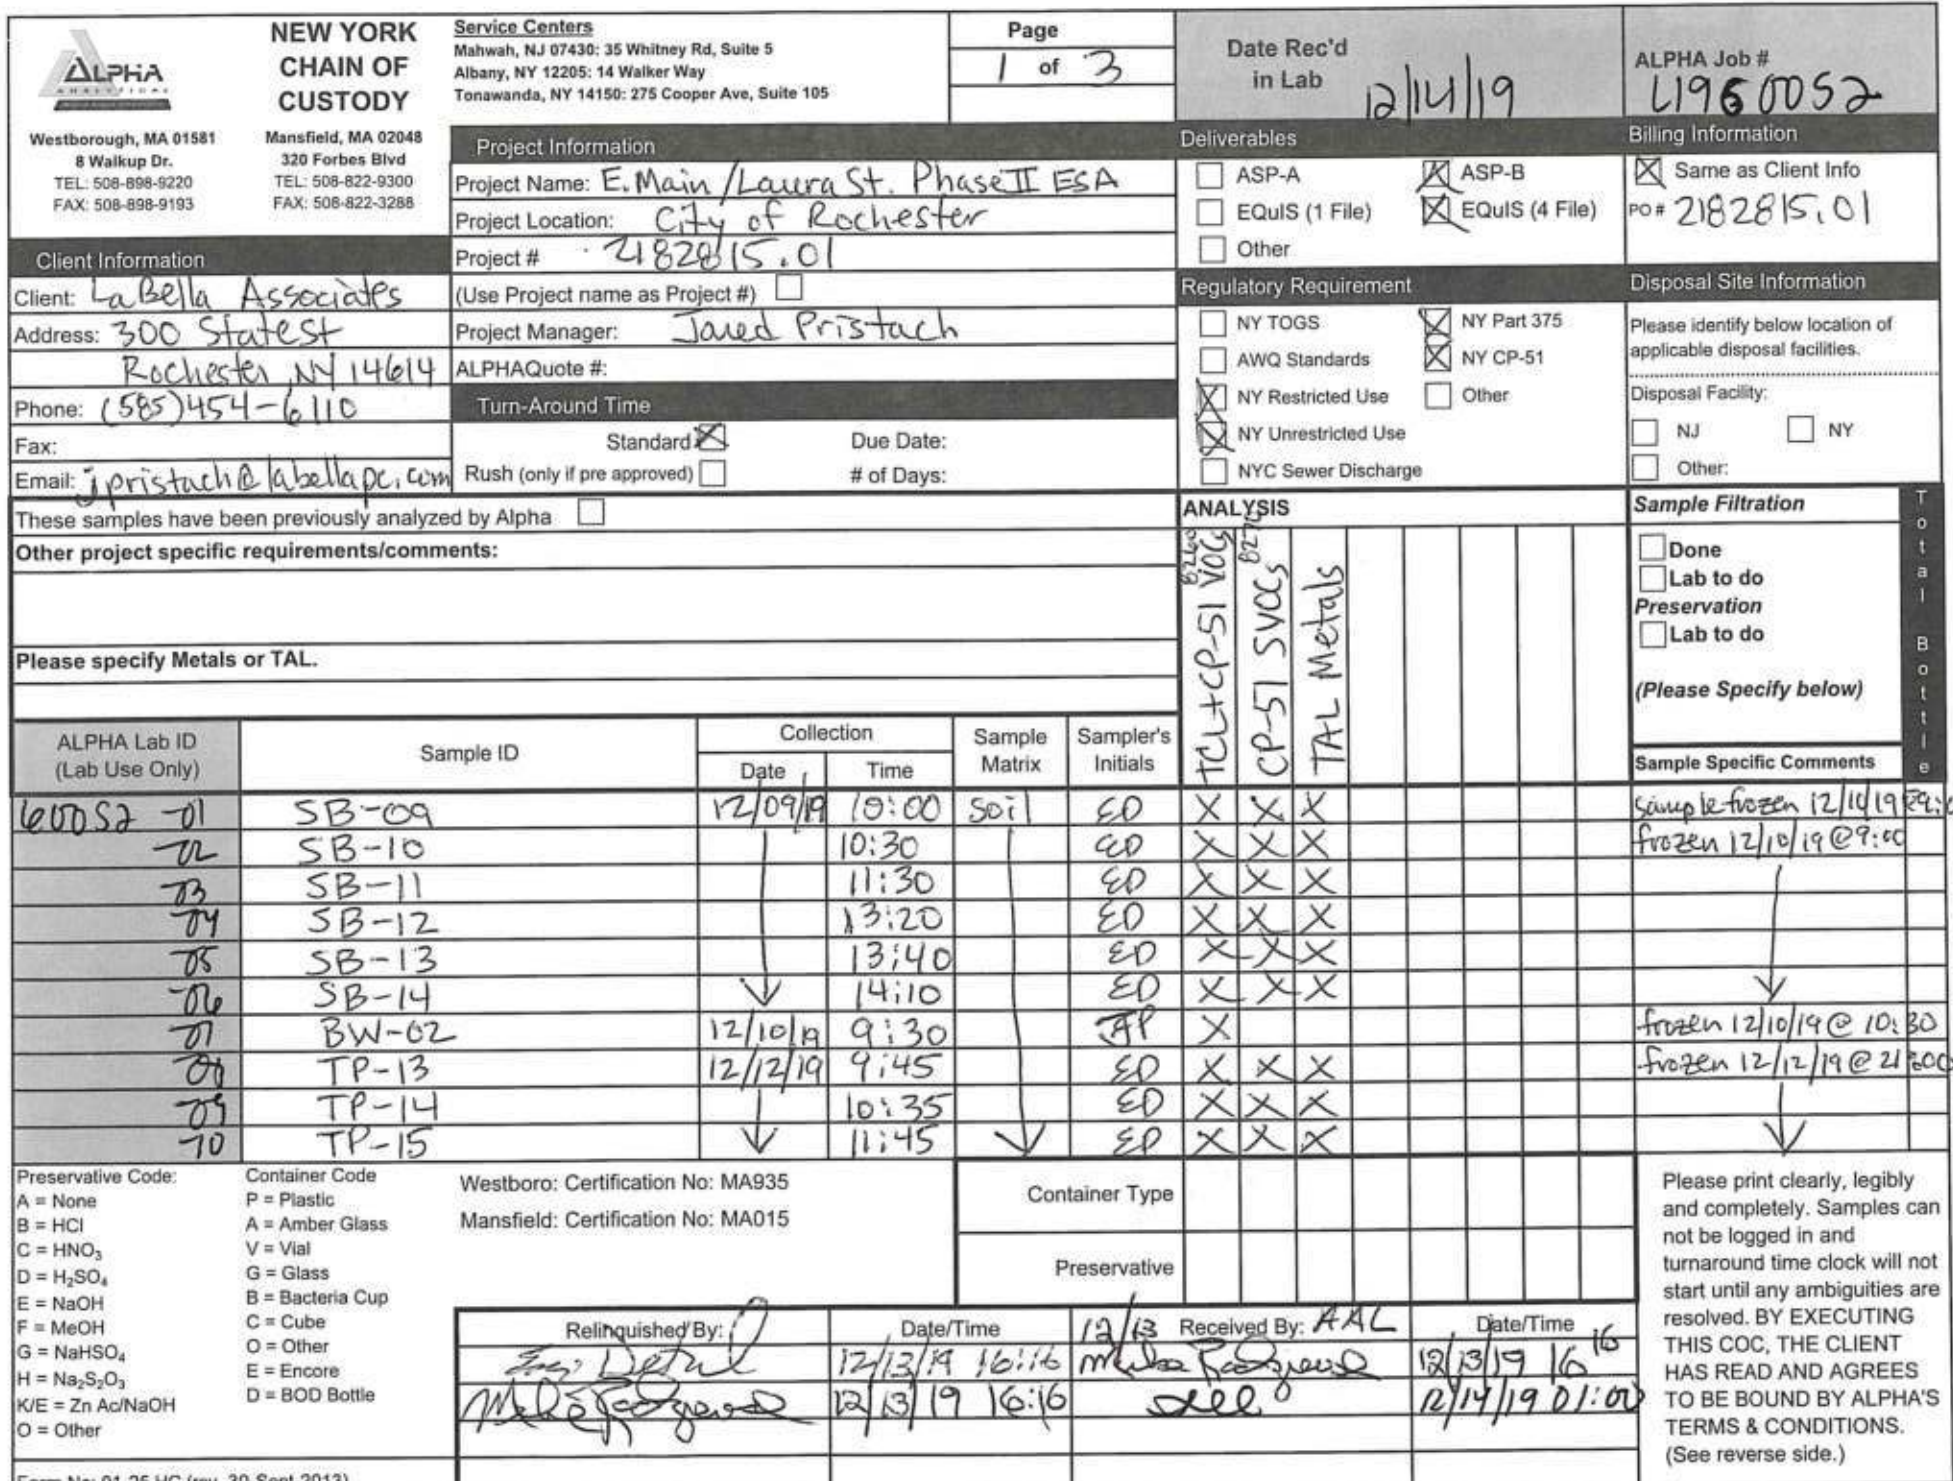 ALPHA
ANALYTICAL
NEW YORK
CHAIN OF
CUSTODY
Westborough, MA 01581
8 Walkup Dr.
TEL: 508-898-9220
FAX: 508-898-9193
Mansfield, MA 02048
320 Forbes Blvd
TEL: 508-822-9300
FAX: 508-822-3288
Service Centers
Mahwah, NJ 07430: 35 Whitney Rd, Suite 5
Albany, NY 12205: 14 Walker Way
Tonawanda, NY 14150: 275 Cooper Ave, Suite 105
Page
1 of 3
Date Rec'd
in Lab 12/14/19
ALPHA Job #
L1960052
Client Information
Client: LaBella Associates
Address: 300 State St
Rochester, NY 14614
Phone: (585)454-6110
Fax:
Email: jpristach@labellapc.com
Project Information
Project Name: E. Main /Laura St. Phase II ESA
Project Location: City of Rochester
Project # 2182815.01
(Use Project name as Project #)
Project Manager: Jared Pristach
ALPHAQuote #:
Turn-Around Time
Standard Due Date:
Rush (only if pre approved) # of Days:
Deliverables
ASP-A ASP-B
EQuIS (1 File) EQuIS (4 File)
Other
Regulatory Requirement
NY TOGS NY Part 375
AWQ Standards NY CP-51
NY Restricted Use Other
NY Unrestricted Use
NYC Sewer Discharge
Billing Information
Same as Client Info
PO # 2182815.01
Disposal Site Information
Please identify below location of
applicable disposal facilities.
Disposal Facility:
NJ NY
Other:
These samples have been previously analyzed by Alpha
Other project specific requirements/comments:
Please specify Metals or TAL.
ANALYSIS
TCL+CP-51 VOCs 8260
CP-51 SVOCs
TAL Metals
Sample Filtration
Done
Lab to do
Preservation
Lab to do
(Please Specify below)
Total Bottle
ALPHA Lab ID
(Lab Use Only)
Sample ID
Collection
Date Time
Sample
Matrix
Sampler's
Initials
Sample Specific Comments
60052 -01 SB-09 12/09/19 10:00 Soil ED X X X sample frozen
-02 SB-10 10:30 ED X X X frozen 12/10/19 @ 9:00
-03 SB-11 11:30 ED X X X
-04 SB-12 13:20 ED X X X
-05 SB-13 13:40 ED X X X
-06 SB-14 14:10 ED X X X
-07 BW-02 12/10/19 9:30 JP X frozen 12/10/19 @ 10:30
-08 TP-13 12/12/19 9:45 ED X X X frozen 12/12/19 @
-09 TP-14 10:35 ED X X X
-10 TP-15 11:45 ED X X X
Preservative Code:
A = None
B = HCl
C = HNO₃
D = H₂SO₄
E = NaOH
F = MeOH
G = NaHSO₄
H = Na₂S₂O₃
K/E = Zn Ac/NaOH
O = Other
Container Code
P = Plastic
A = Amber Glass
V = Vial
G = Glass
B = Bacteria Cup
C = Cube
O = Other
E = Encore
D = BOD Bottle
Westboro: Certification No: MA935
Mansfield: Certification No: MA015
Container Type
Preservative
Relinquished By: Date/Time 12/13 Received By: AAL Date/Time
12/13/19 16:16 12/13/19 16 16
12/13/19 16:16 12/14/19 01:00
Please print clearly, legibly
and completely. Samples can
not be logged in and
turnaround time clock will not
start until any ambiguities are
resolved. BY EXECUTING
THIS COC, THE CLIENT
HAS READ AND AGREES
TO BE BOUND BY ALPHA'S
TERMS & CONDITIONS.
(See reverse side.)
Form No: 01-25 HC (rev. 30-Sept-2013)